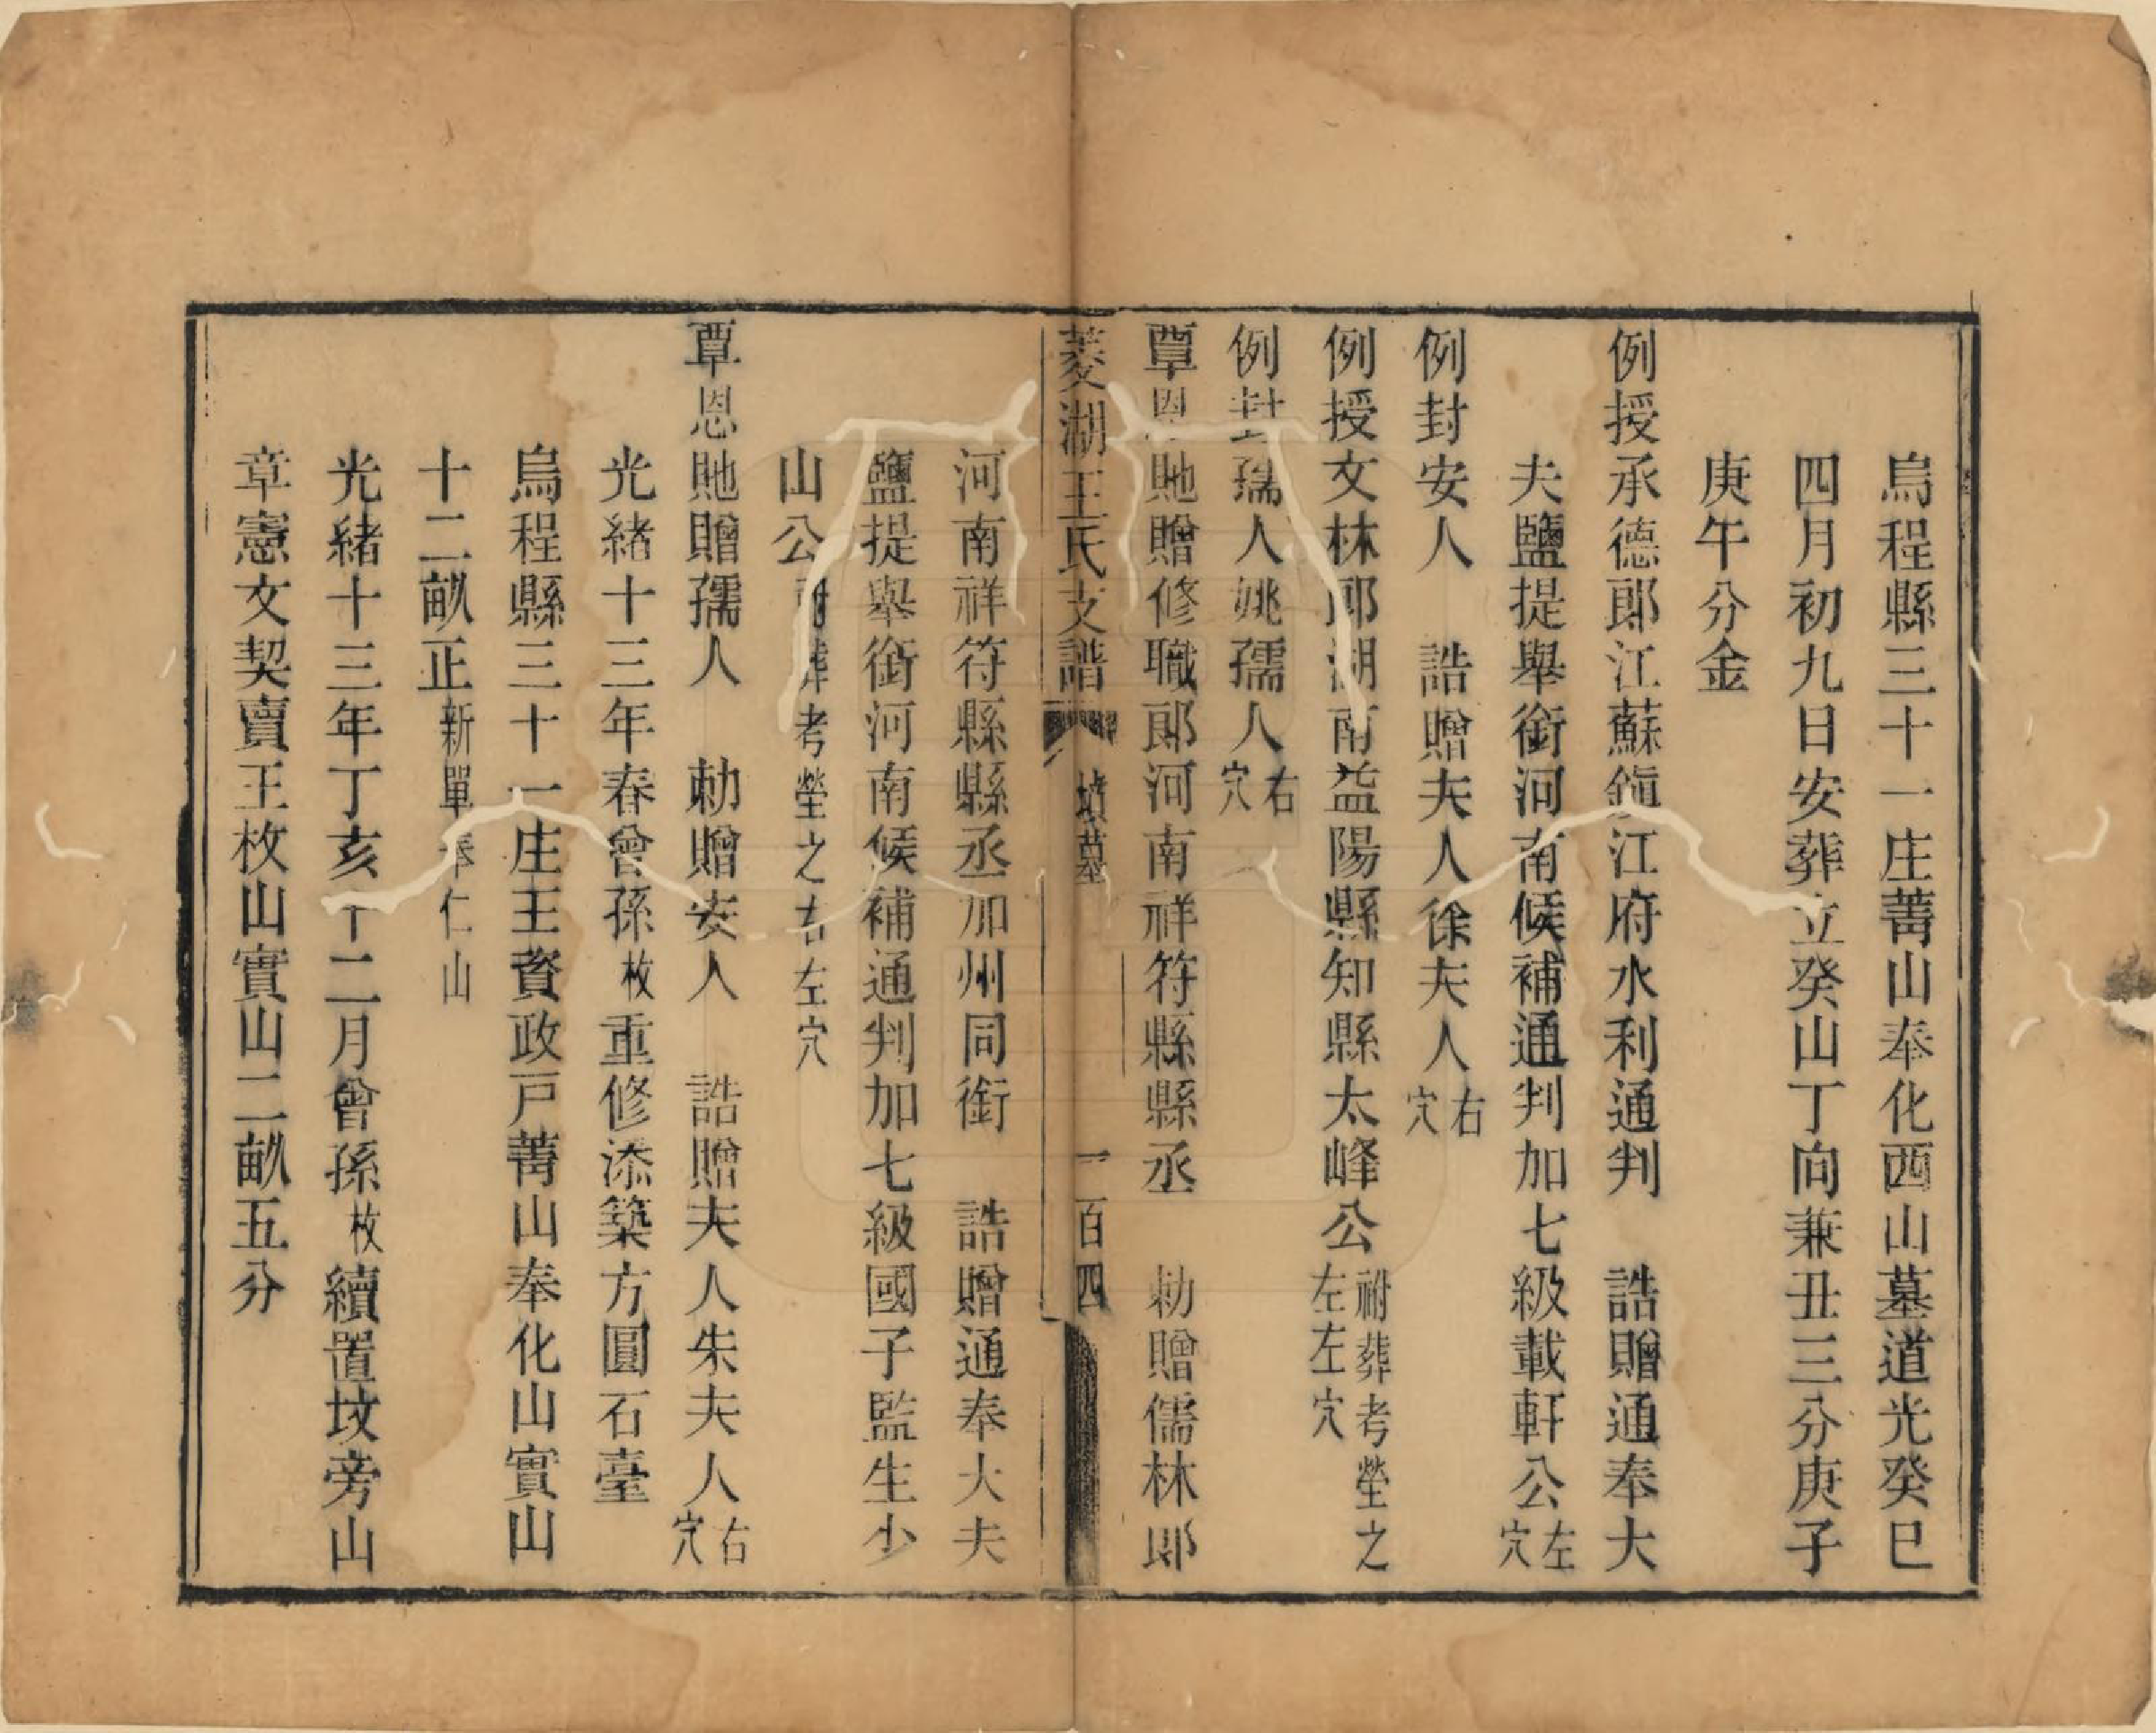 烏程縣三十一庄菁山奉化西山墓道光癸巳
四月初九日安葬立癸山丁向兼丑三分庚子
庚午分金
例授承德郎江蘇鎭江府水利通判　誥贈通奉大
夫鹽提舉銜河南候補通判加七級載軒公左穴
例封安人　誥贈夫人徐夫人右穴
例授文林郎湖南益陽縣知縣太峰公祔葬考塋之左左穴
例封孺人姚孺人右穴
覃恩貤贈修職郎河南祥符縣縣丞　勅贈儒林郎
菱湖王氏支譜　墳墓　一百四
河南祥符縣縣丞加州同銜　誥贈通奉大夫
鹽提舉銜河南候補通判加七級國子監生少
山公祔葬考塋之右左穴
覃恩貤贈孺人　勅贈安人　誥贈夫人朱夫人右穴
光緒十三年春曾孫枚重修添築方圓石臺
烏程縣三十一庄王資政戸菁山奉化山實山
十二畝正新單奉仁山
光緒十三年丁亥十二月曾孫枚續置坟旁山
章憲文契賣王枚山實山二畝五分